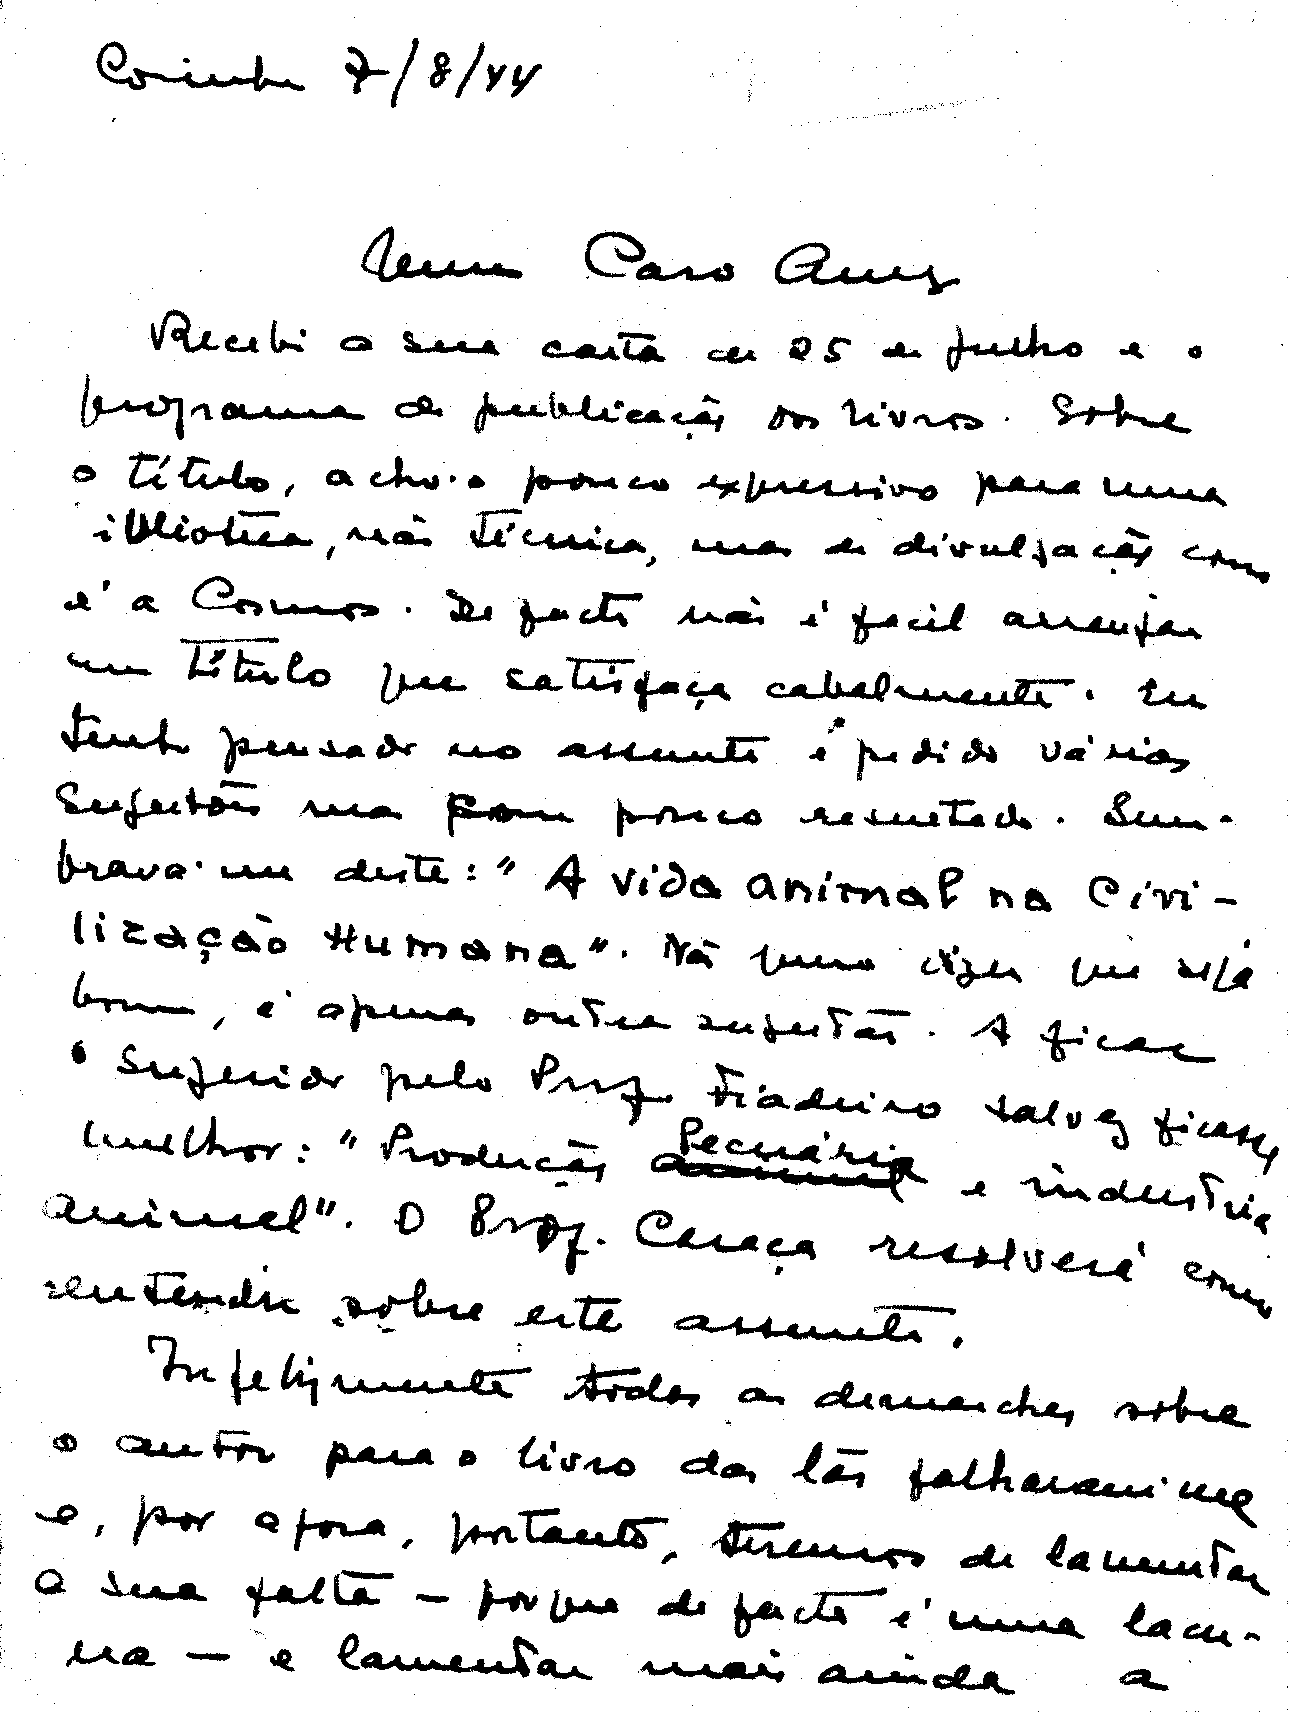 Coimbra 7/8/44
Meu Caro Amº
Recebi a sua carta de 25 de Julho e o
programa de publicação dos livros. Sobre
o título, acho-o pouco expressivo para uma
iblioteca, não técnica, mas de divulgação como
é a Cosmos. De facto não é facil arranjar
um título que satisfaça cabalmente. Eu
tenho pensado no assunto e pedido várias
sugestões mas com pouco resultado. Lem-
brava-me deste: "A vida animal na Civi-
lização Humana". Não quero dizer que seja
bom, é apenas outra sugestão. A ficar
o sugerido pelo Prof. Fiadeiro talvez ficasse
melhor: "Produção Pecuária e indústria
animal". O Prof. Caraça resolverá como
entender sobre este assunto.
Infelizmente todas as demarches sobre
o autor para o livro das lãs falharam-me
e, por agora, portanto, teremos de lamentar
a sua falta — porque de facto é uma lacu-
na — e lamentar mais ainda a